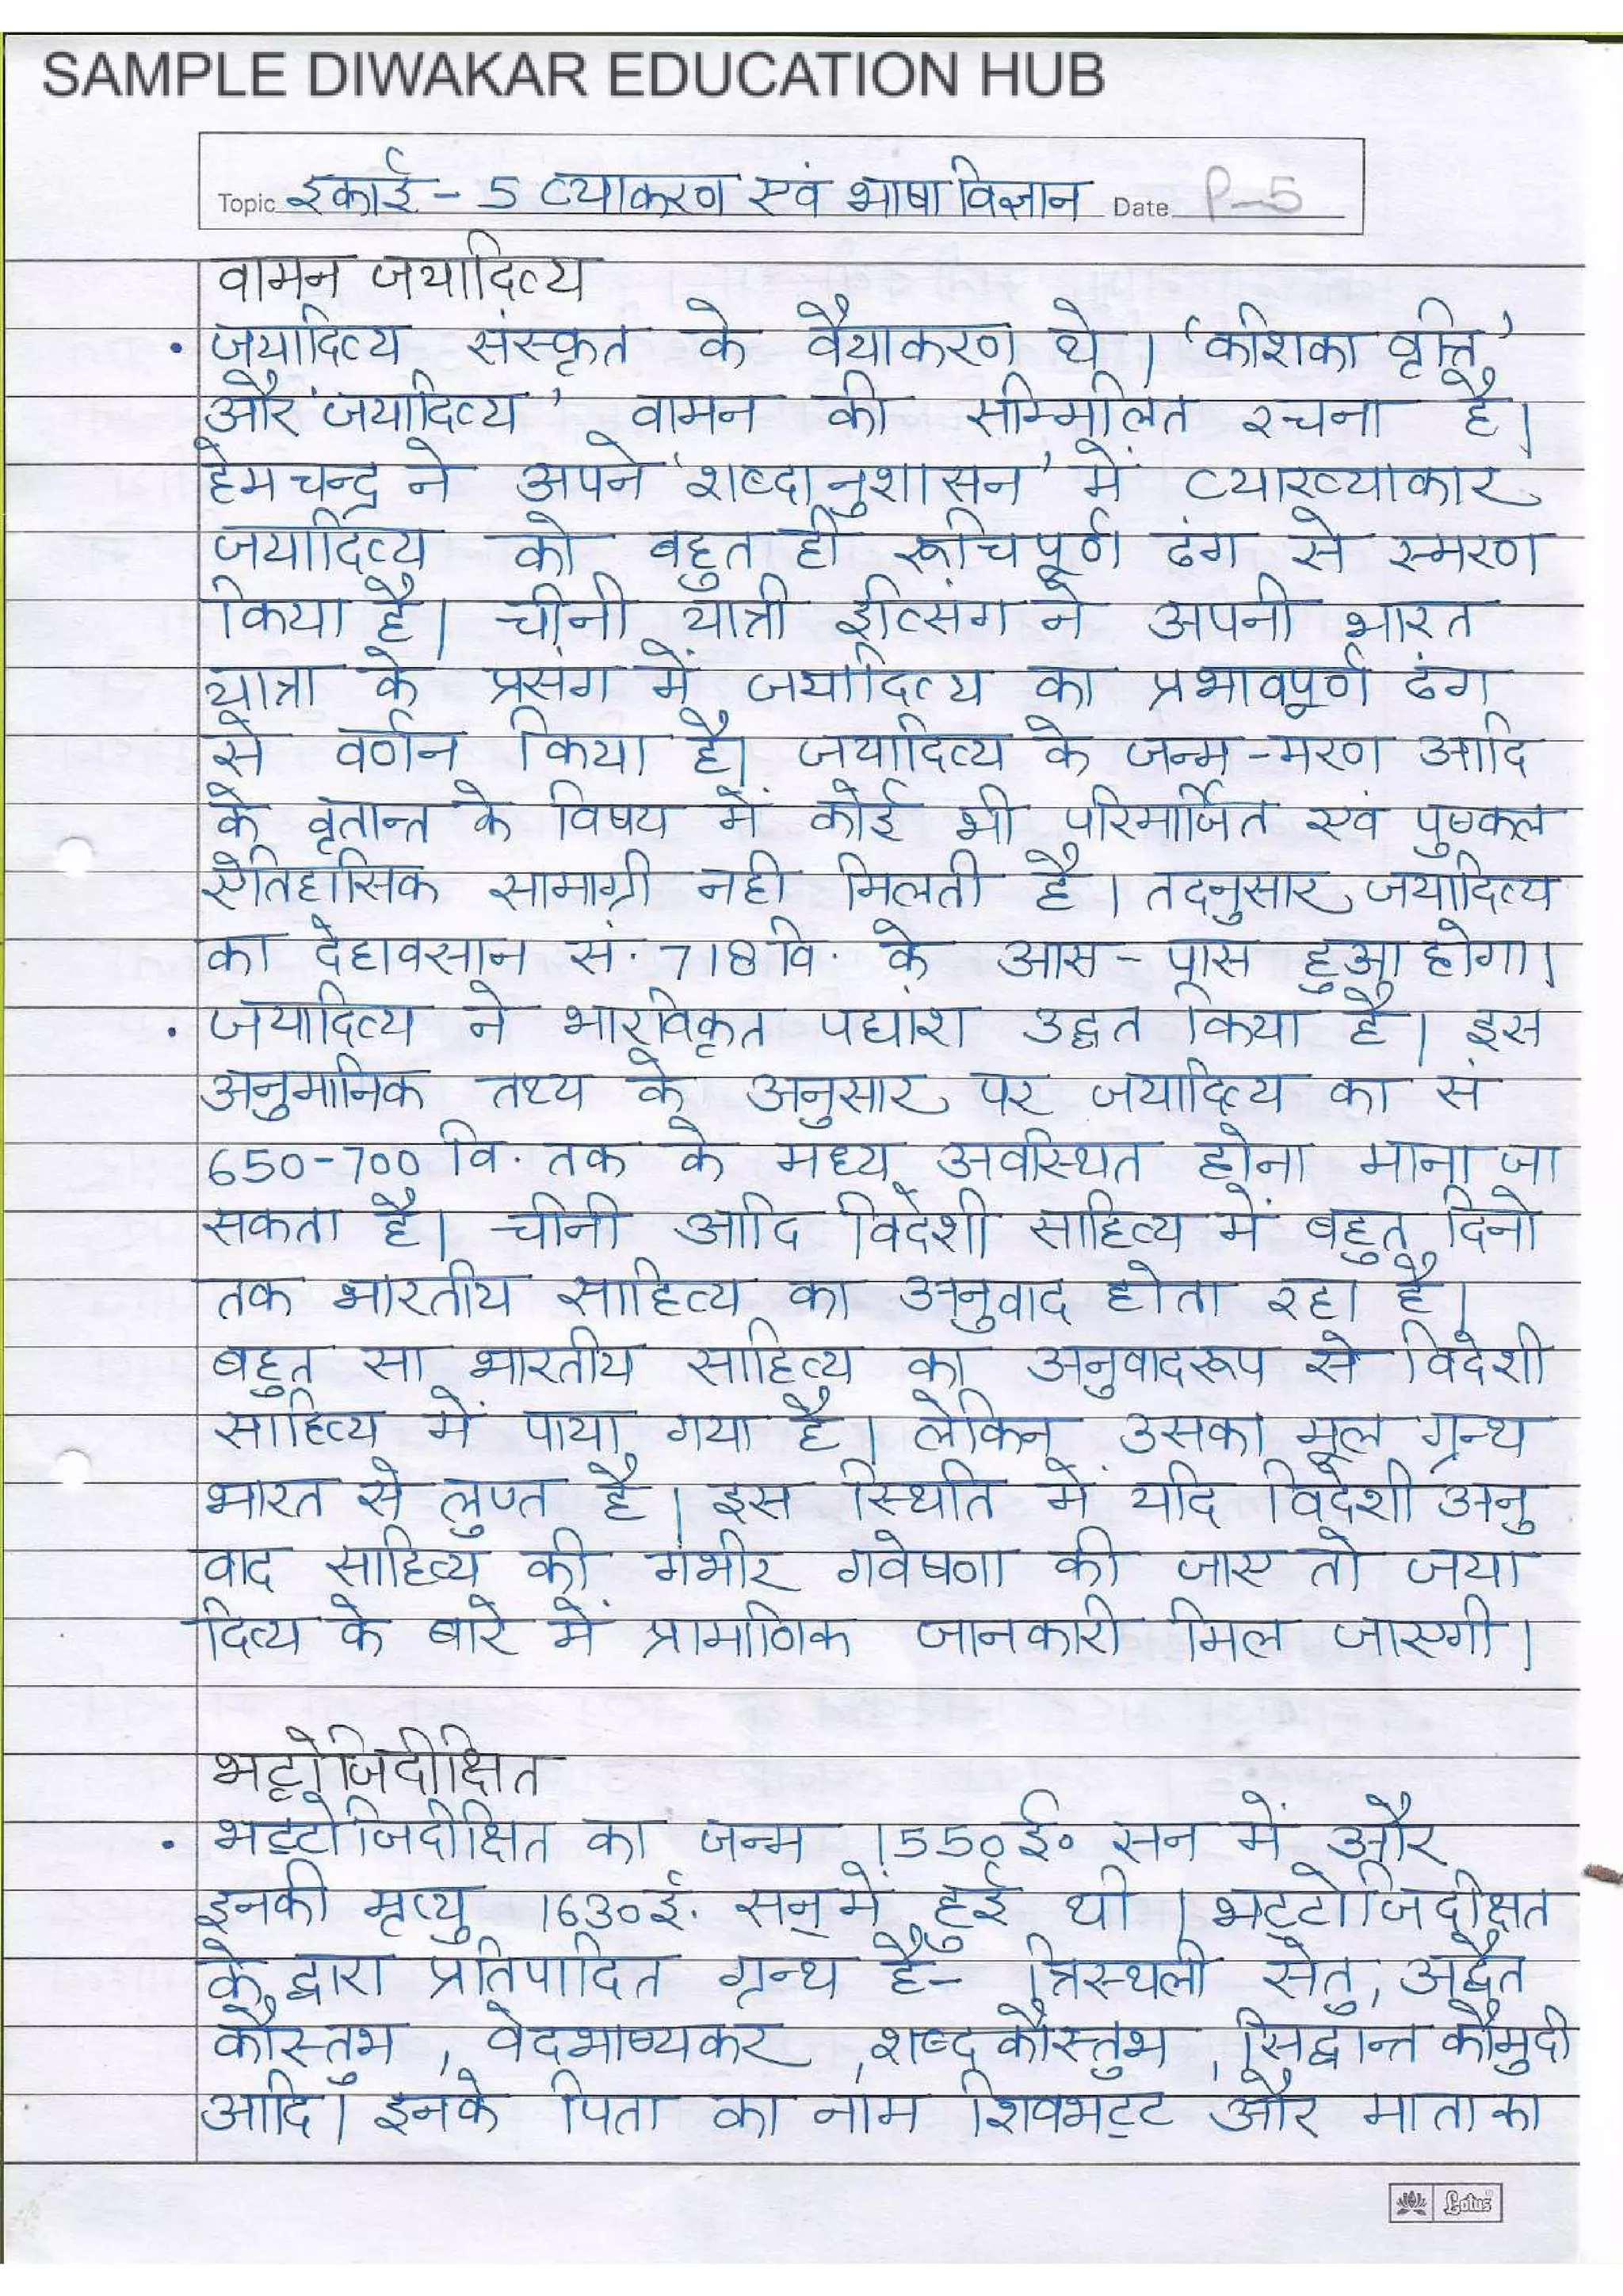 SAMPLE DIWAKAR EDUCATION HUB
Topic इकाई - 5 व्याकरण एवं भाषा विज्ञान Date P-5
वामन जयादित्य
• जयादित्य संस्कृत के वैयाकरण थे। 'कशिका वृत्ति'
और 'जयादित्य' वामन की सम्मिलित रचना है।
हेमचन्द्र ने अपने 'शब्दानुशासन' में व्याख्याकार
जयादित्य को बहुत ही रूचिपूर्ण ढंग से स्मरण
किया है। चीनी यात्री ईत्सिंग ने अपनी भारत
यात्रा के प्रसंग में जयादित्य का प्रभावपूर्ण ढंग
से वर्णन किया है। जयादित्य के जन्म-मरण आदि
के वृतान्त के विषय में कोई भी परिमार्जित एवं पुष्कल
ऐतिहासिक सामाग्री नही मिलती है। तदनुसार जयादित्य
का देहावसान सं. 718 वि. के आस-पास हुआ होगा।
• जयादित्य ने भारविकृत पद्यांश उद्धत किया है। इस
अनुमानिक तथ्य के अनुसार पर जयादित्य का सं
650-700 वि. तक के मध्य अवस्थित होना माना जा
सकता है। चीनी आदि विदेशी साहित्य में बहुत दिनो
तक भारतीय साहित्य का अनुवाद होता रहा है।
बहुत सा भारतीय साहित्य का अनुवादरूप से विदेशी
साहित्य में पाया गया है। लेकिन उसका मूल ग्रन्थ
भारत से लुप्त है। इस स्थिति में यदि विदेशी अनु
वाद साहित्य की गंभीर गवेषणा की जाए तो जया
दित्य के बारे में प्रामाणिक जानकारी मिल जाएगी।
भट्टोजिदीक्षित
• भट्टोजिदीक्षित का जन्म 1550 ई० सन में और
इनकी मृत्यु 1630 ई. सन् में हुई थी। भट्टोजिदीक्षत
के द्वारा प्रतिपादित ग्रन्थ है- त्रिस्थली सेतु, अद्वैत
कौस्तुभ, वेदभाष्यकर, शब्द कौस्तुभ, सिद्वान्त कौमुदी
आदि। इनके पिता का नाम शिवभट्ट और माता का
Lotus